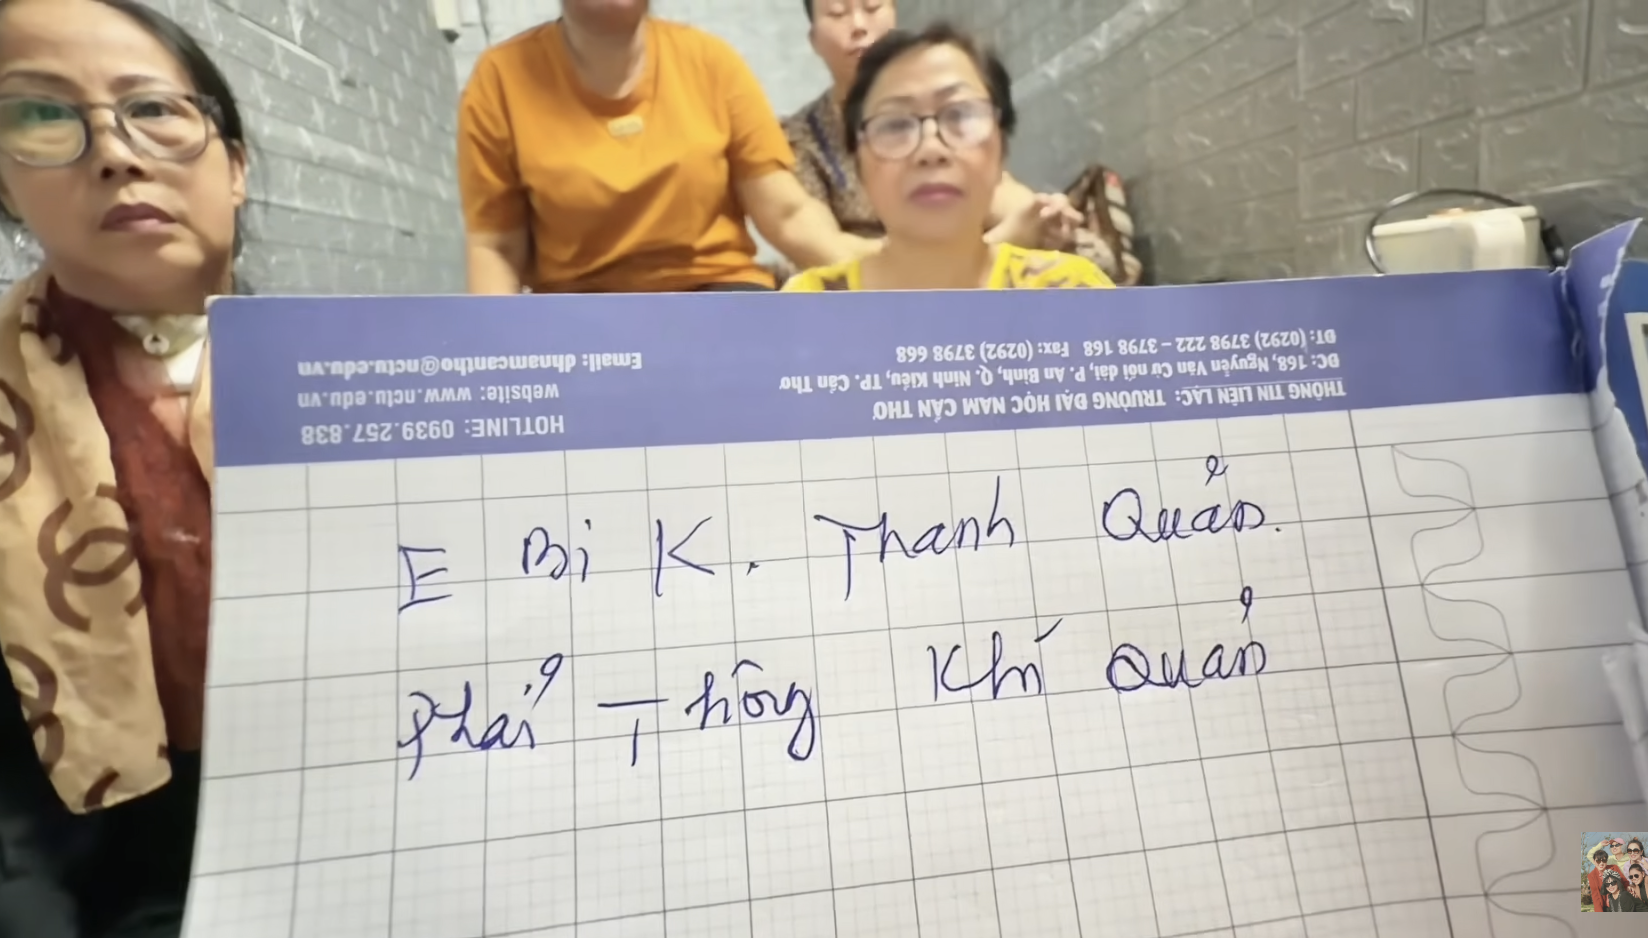 Email: dhnamcantho@nctu.edu.vn
website: www.nctu.edu.vn
HOTLINE: 0939.257.838
THÔNG TIN LIÊN LẠC: TRƯỜNG ĐẠI HỌC NAM CẦN THƠ
ĐC: 168, Nguyễn Văn Cừ nối dài, P. An Bình, Q. Ninh Kiều, TP. Cần Thơ
ĐT: (0292) 3798 222 - 3798 168 Fax: (0292) 3798 668
E Bị K. Thanh Quản.
Phải Thông Khí Quản